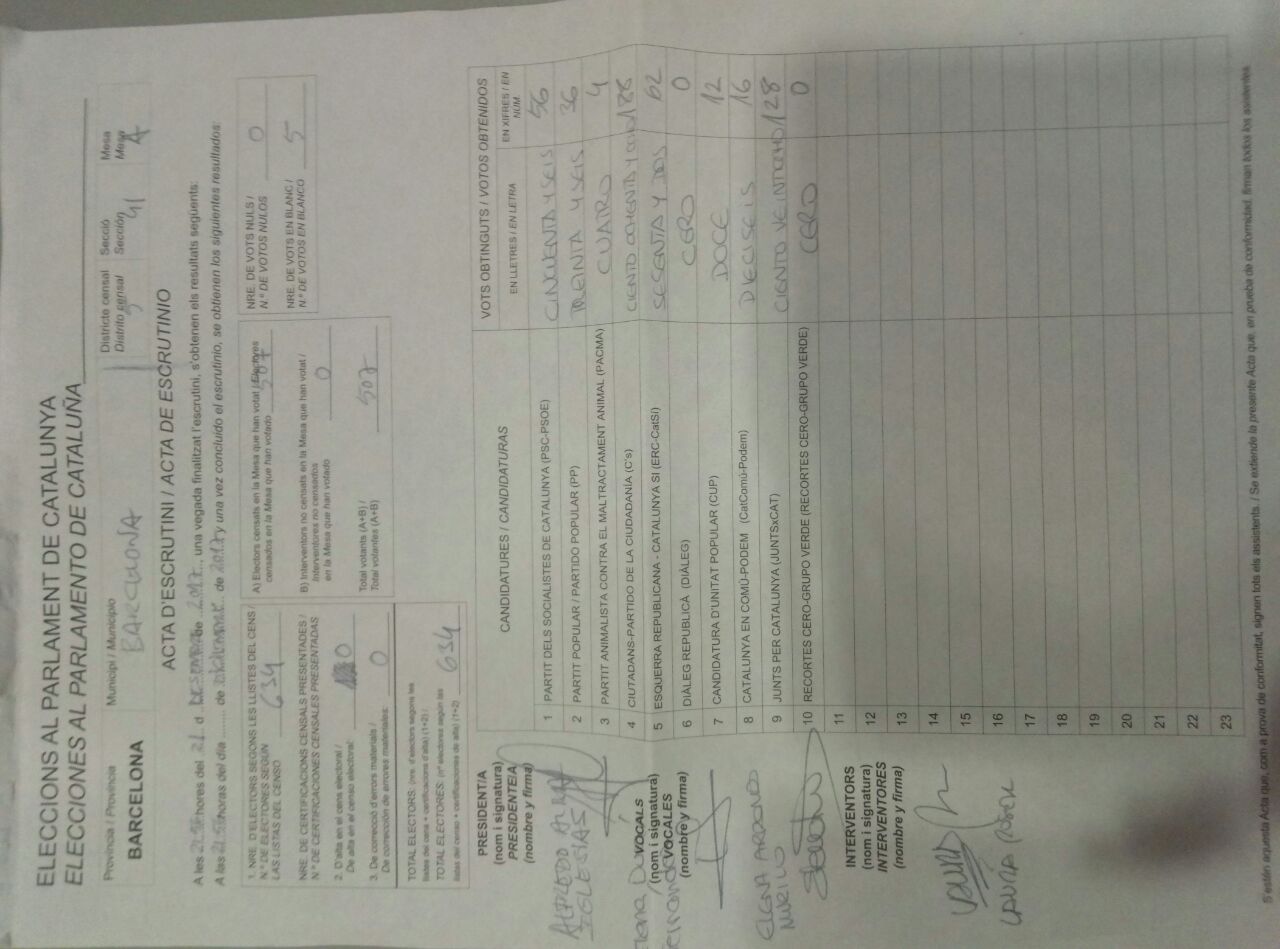 ELECCIONS AL PARLAMENT DE CATALUNYA
ELECCIONES AL PARLAMENTO DE CATALUÑA
Provincia / Provincia
BARCELONA
Municipi / Municipio
BARCELONA
Districte censal
Distrito censal
Secció
Sección
41
Mesa
Mesa
A
ACTA D'ESCRUTINI / ACTA DE ESCRUTINIO
A les hores del 21 d de 2017, una vegada finalitzat l'escrutini, s'obtenen els resultats següents:
A las horas del día de de 2017 y una vez concluido el escrutinio, se obtienen los siguientes resultados:
1. NRE. D'ELECTORS SEGONS LES LLISTES DEL CENS /
N.º DE ELECTORES SEGÚN
LAS LISTAS DEL CENSO
634
NRE. DE CERTIFICACIONS CENSALS PRESENTADES /
N.º DE CERTIFICACIONES CENSALES PRESENTADAS
2. D'alta en el cens electoral /
De alta en el censo electoral:
0
3. De correcció d'errors materials /
De corrección de errores materiales:
0
TOTAL ELECTORS: (nre. d'electors segons les
llistes del cens + certificacions d'alta) (1+2) /
TOTAL ELECTORES: (nº electores según las
listas del censo + certificaciones de alta) (1+2)
634
A) Electors censats en la Mesa que han votat / Electores
censados en la Mesa que han votado
507
B) Interventors no censats en la Mesa que han votat /
Interventores no censados
en la Mesa que han votado
0
Total votants (A+B) /
Total votantes (A+B)
507
NRE. DE VOTS NULS /
N.º DE VOTOS NULOS
0
NRE. DE VOTS EN BLANC /
N.º DE VOTOS EN BLANCO
5
CANDIDATURES / CANDIDATURAS
VOTS OBTINGUTS / VOTOS OBTENIDOS
EN LLETRES / EN LETRA
EN XIFRES / EN NÚM.
1 PARTIT DELS SOCIALISTES DE CATALUNYA (PSC-PSOE) CINCUENTA Y SEIS 56
2 PARTIT POPULAR / PARTIDO POPULAR (PP) TREINTA Y SEIS 36
3 PARTIT ANIMALISTA CONTRA EL MALTRACTAMENT ANIMAL (PACMA) CUATRO 4
4 CIUTADANS-PARTIDO DE LA CIUDADANÍA (C's) CIENTO OCHENTA Y OCHO 188
5 ESQUERRA REPUBLICANA - CATALUNYA SI (ERC-CatSí) SESENTA Y DOS 62
6 DIÀLEG REPUBLICÀ (DIÀLEG) CERO 0
7 CANDIDATURA D'UNITAT POPULAR (CUP) DOCE 12
8 CATALUNYA EN COMÚ-PODEM (CatComú-Podem) DIECISEIS 16
9 JUNTS PER CATALUNYA (JUNTSxCAT) CIENTO VEINTIOCHO 128
10 RECORTES CERO-GRUPO VERDE (RECORTES CERO-GRUPO VERDE) CERO 0
11
12
13
14
15
16
17
18
19
20
21
22
23
PRESIDENT/A
(nom i signatura)
PRESIDENTE/A
(nombre y firma)
ALFREDO
IGLESIAS
VOCALS
(nom i signatura)
VOCALES
(nombre y firma)
ELENA
MURILLO
INTERVENTORS
(nom i signatura)
INTERVENTORES
(nombre y firma)
LAURA
S'estén aquesta Acta que, com a prova de conformitat, signen tots els assistents. / Se extiende la presente Acta que, en prueba de conformidad, firman todos los asistentes.